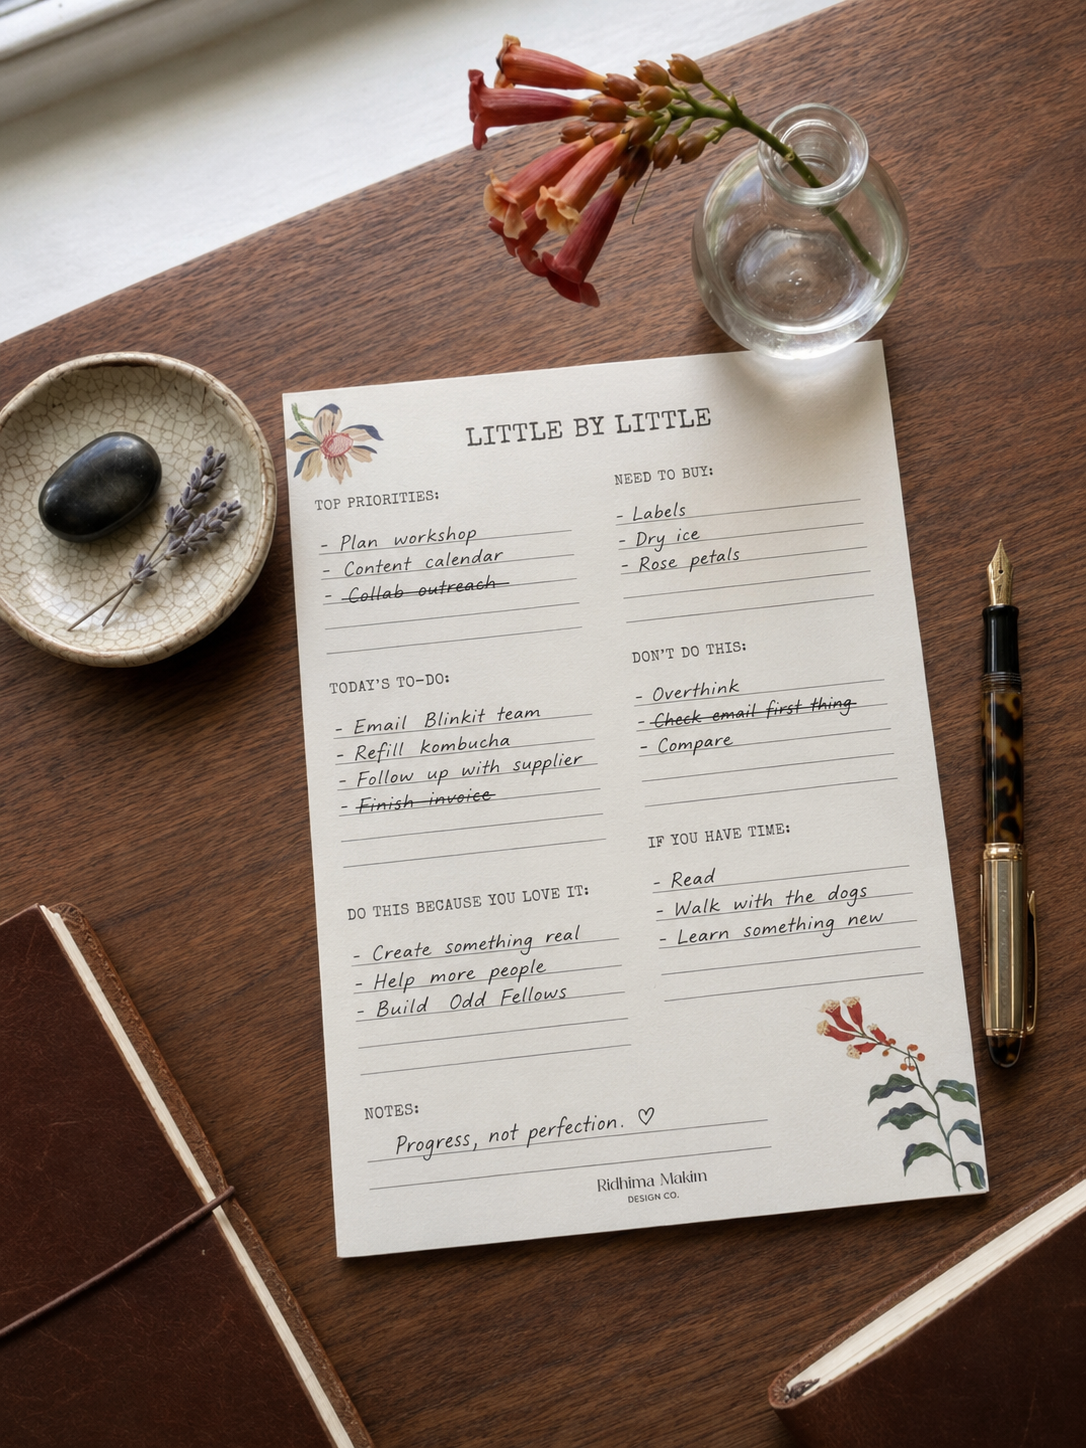 LITTLE BY LITTLE
TOP PRIORITIES:
- Plan workshop
- Content calendar
- Collab outreach
TODAY'S TO-DO:
- Email Blinkit team
- Refill kombucha
- Follow up with supplier
- Finish invoice
DO THIS BECAUSE YOU LOVE IT:
- Create something real
- Help more people
- Build Odd Fellows
NEED TO BUY:
- Labels
- Dry ice
- Rose petals
DON'T DO THIS:
- Overthink
- Check email first thing
- Compare
IF YOU HAVE TIME:
- Read
- Walk with the dogs
- Learn something new
NOTES:
Progress, not perfection. ♡
Ridhima Makim
DESIGN CO.